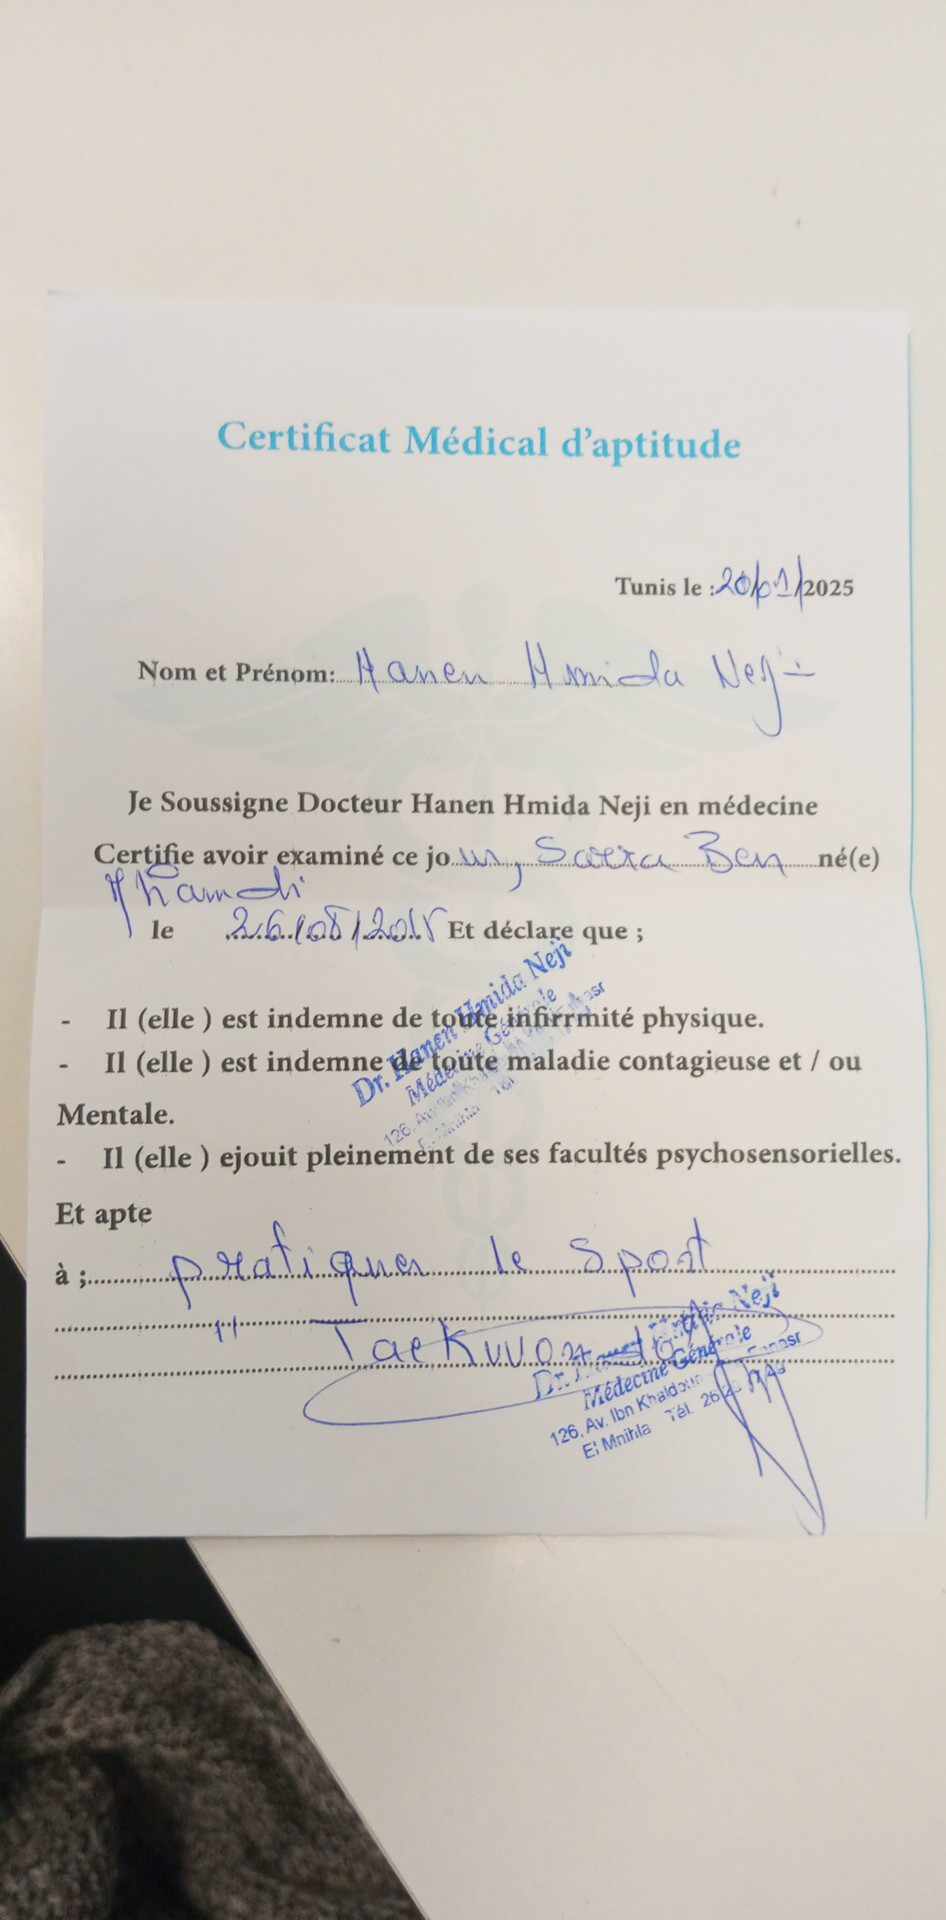 Certificat Médical d'aptitude
Tunis le : 20/01/2025
Nom et Prénom: Hanen Hmida Neji
Je Soussigne Docteur Hanen Hmida Neji en médecine
Certifie avoir examiné ce jour, Ben né(e)
le 26/08/2015 Et déclare que ;
- Il (elle ) est indemne de toute infirrmité physique.
- Il (elle ) est indemne de toute maladie contagieuse et / ou
Mentale.
- Il (elle ) ejouit pleinement de ses facultés psychosensorielles.
Et apte
à ; pratiquer le sport
" Taekwondo
Dr. Hanen Hmida Neji
Médecine Générale
126, Av.
El Mnihla Tél
Dr. Neji
Médecine Générale
126, Av. Ibn Khaldoun Ennasr
El Mnihla Tél. 26